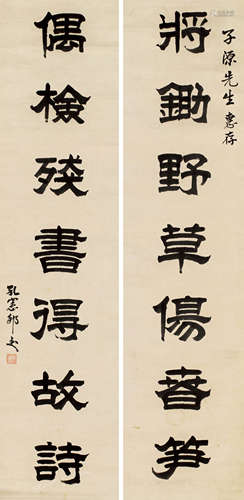 子源先生惠存
將鋤野草傷春笋
偶檢殘書得故詩
孔憲邦